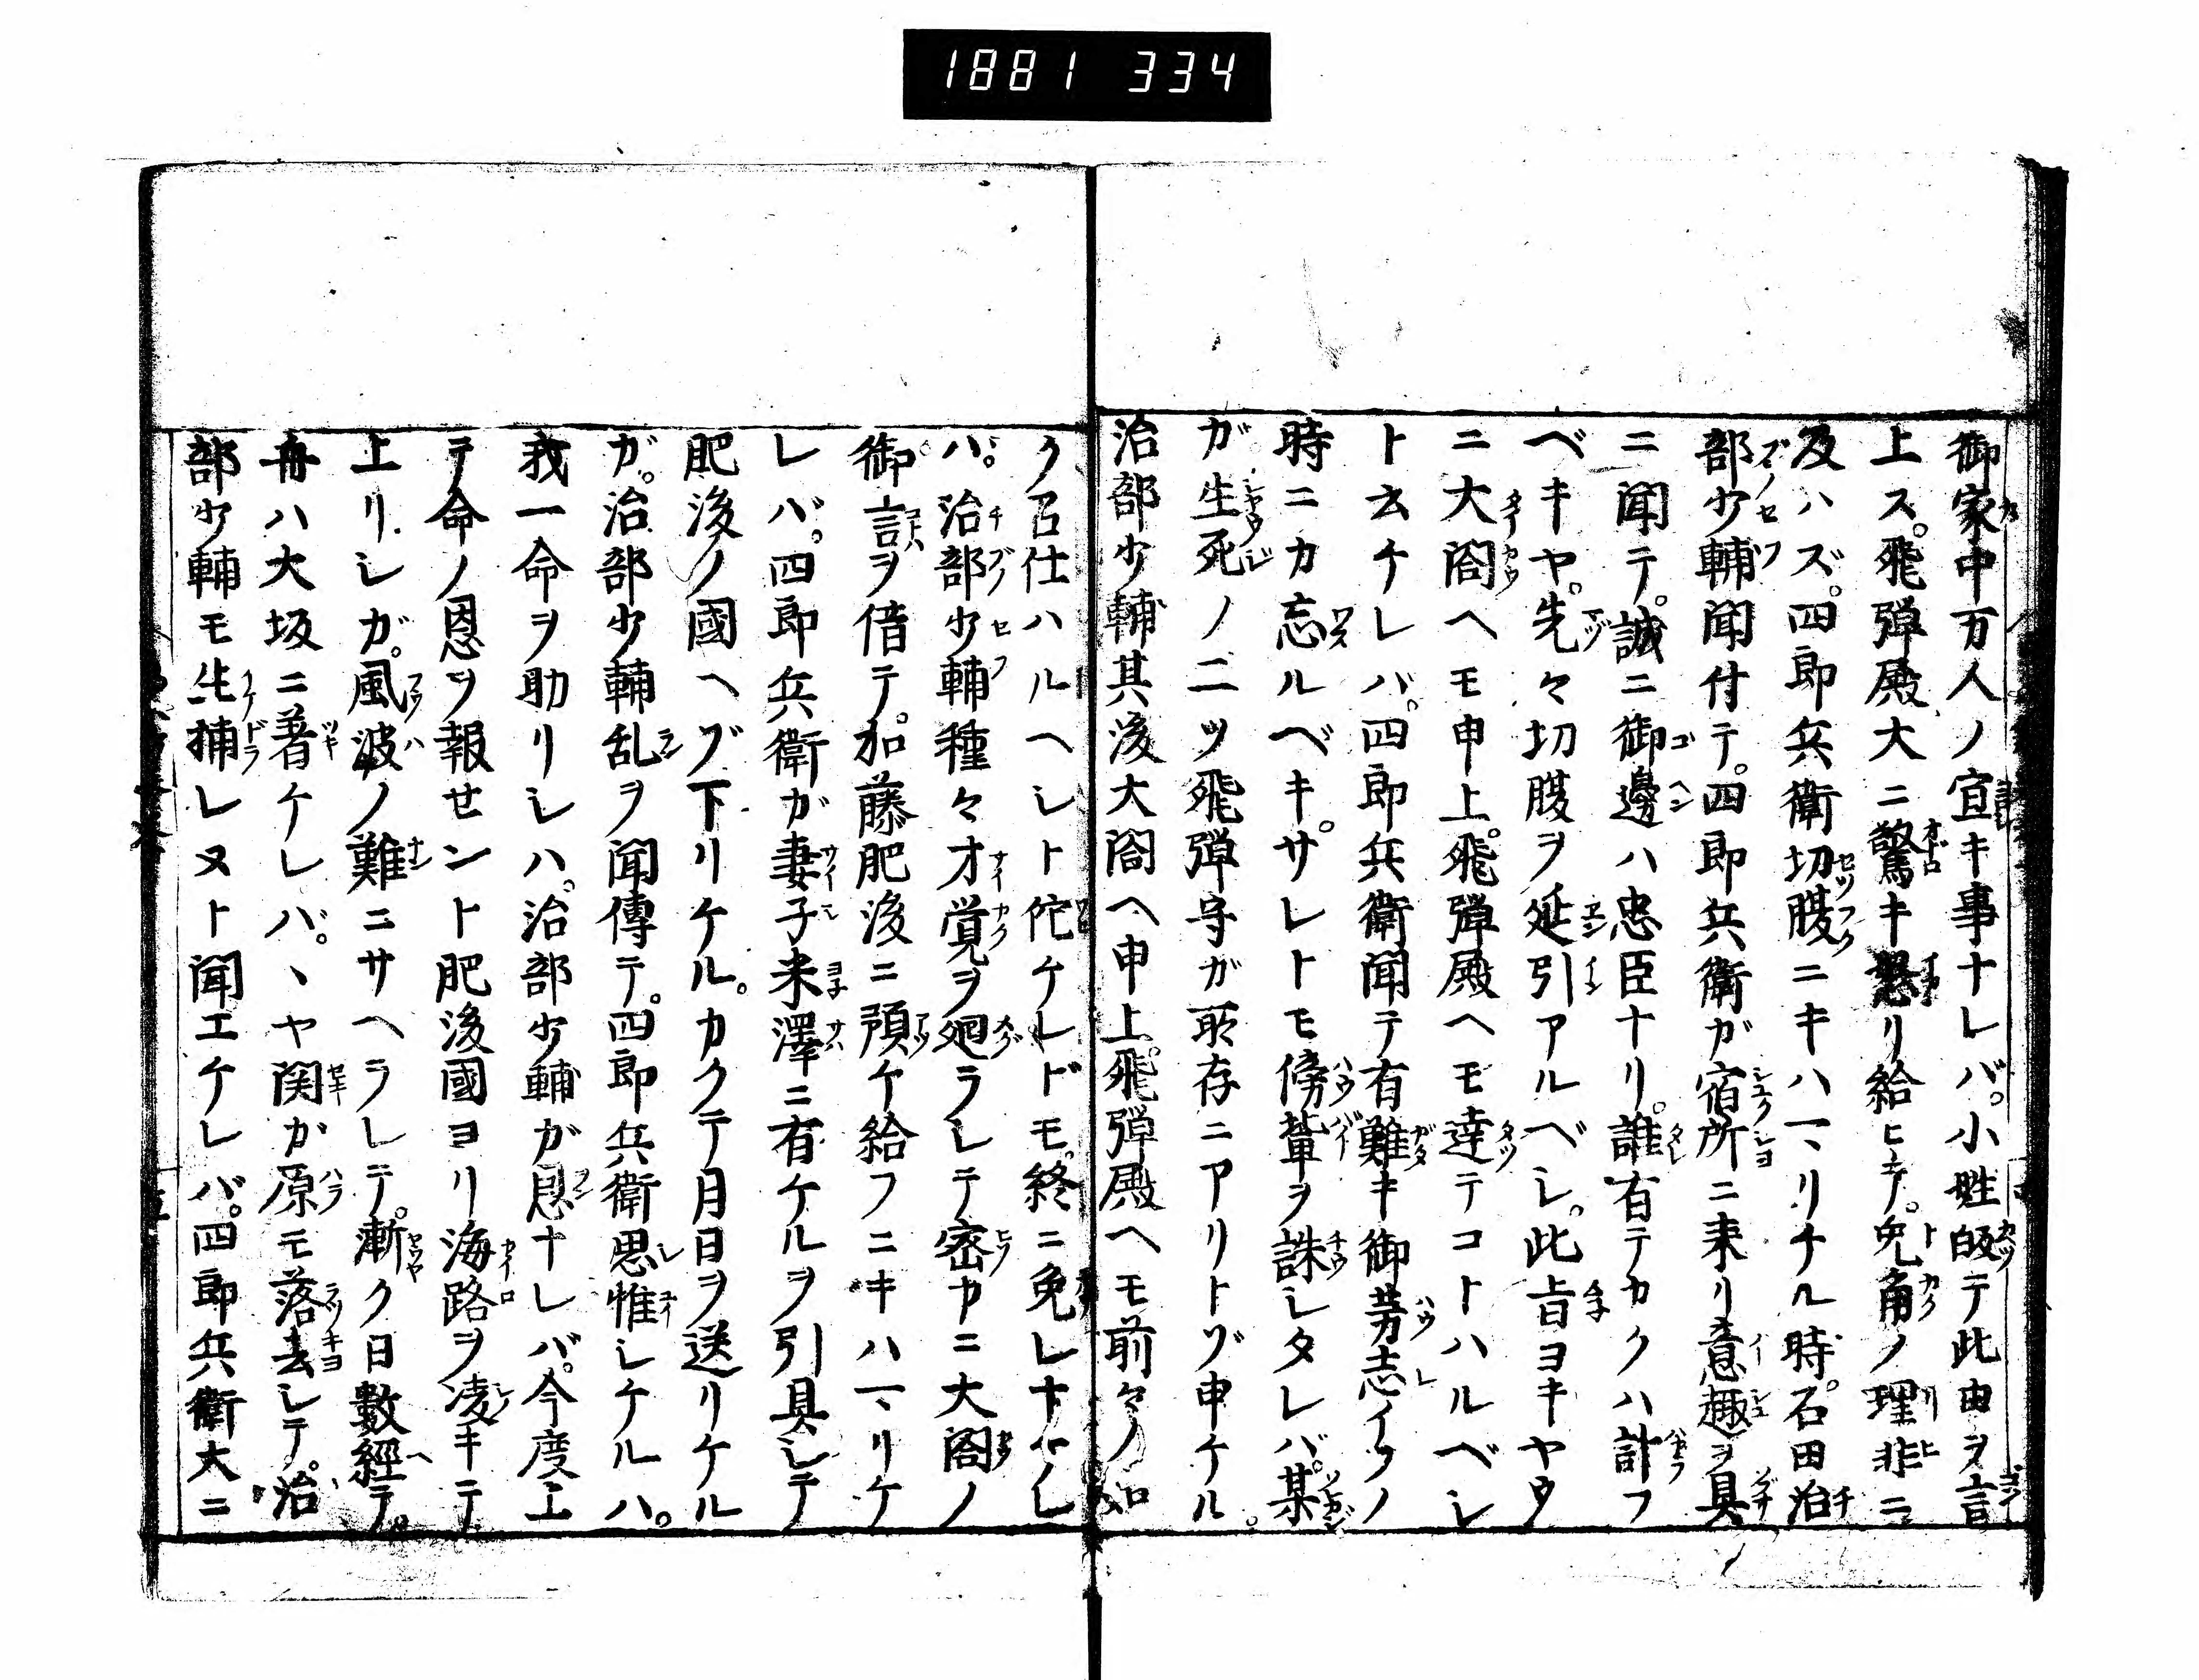 1881 334
御家中万人ノ宜キ事ナレバ。小姓皈テ此由ヲ言
上ス。飛弾殿大ニ驚キ怒リ給ヒテ。兎角ノ理非ニ
及ハズ。四郎兵衛切腹ニキハマリケル時。石田治
部少輔聞付テ。四郎兵衛ガ宿所ニ来リ意趣ヲ具
ニ聞テ。誠ニ御邊ハ忠臣ナリ。誰有テカクハ計フ
ベキヤ。先々切腹ヲ延引アルベシ。此旨ヨキヤウ
ニ大閤ヘモ申上。飛弾殿ヘモ達テコトハルベシ
ト云ケレバ。四郎兵衛聞テ有難キ御芳志イツノ
時ニカ忘ルベキ。サレトモ傍輩ヲ誅シタレバ。某
ガ生死ノ二ツ飛弾守ガ所存ニアリトゾ申ケル。
治部少輔其後大閤ヘ申上。飛弾殿ヘモ前々ノ如
ク召仕ハルヘシト佗ケレドモ。終ニ免レナケレ
バ。治部少輔種々才覚ヲ廻ラシテ密カニ大閤ノ
御言ヲ借テ。加藤肥後ニ預ケ給フニキハマリケ
レバ。四郎兵衛ガ妻子米澤ニ有ケルヲ引具シテ
肥後ノ國ヘゾ下リケル。カクテ月日ヲ送リケル
ガ。治部少輔乱ヲ聞傳テ。四郎兵衛思惟シケルハ。
我一命ヲ助リシハ。治部少輔ガ恩ナレバ。今度上
テ命ノ恩ヲ報せント肥後國ヨリ海路ヲ凌キテ
上リシガ。風波ノ難ニサヘラレテ。漸ク日數經テ。
舟ハ大坂ニ著ケレバ。ハヤ関か原モ落去シテ。治
部少輔モ生捕レヌト聞エケレバ。四郎兵衛大ニ